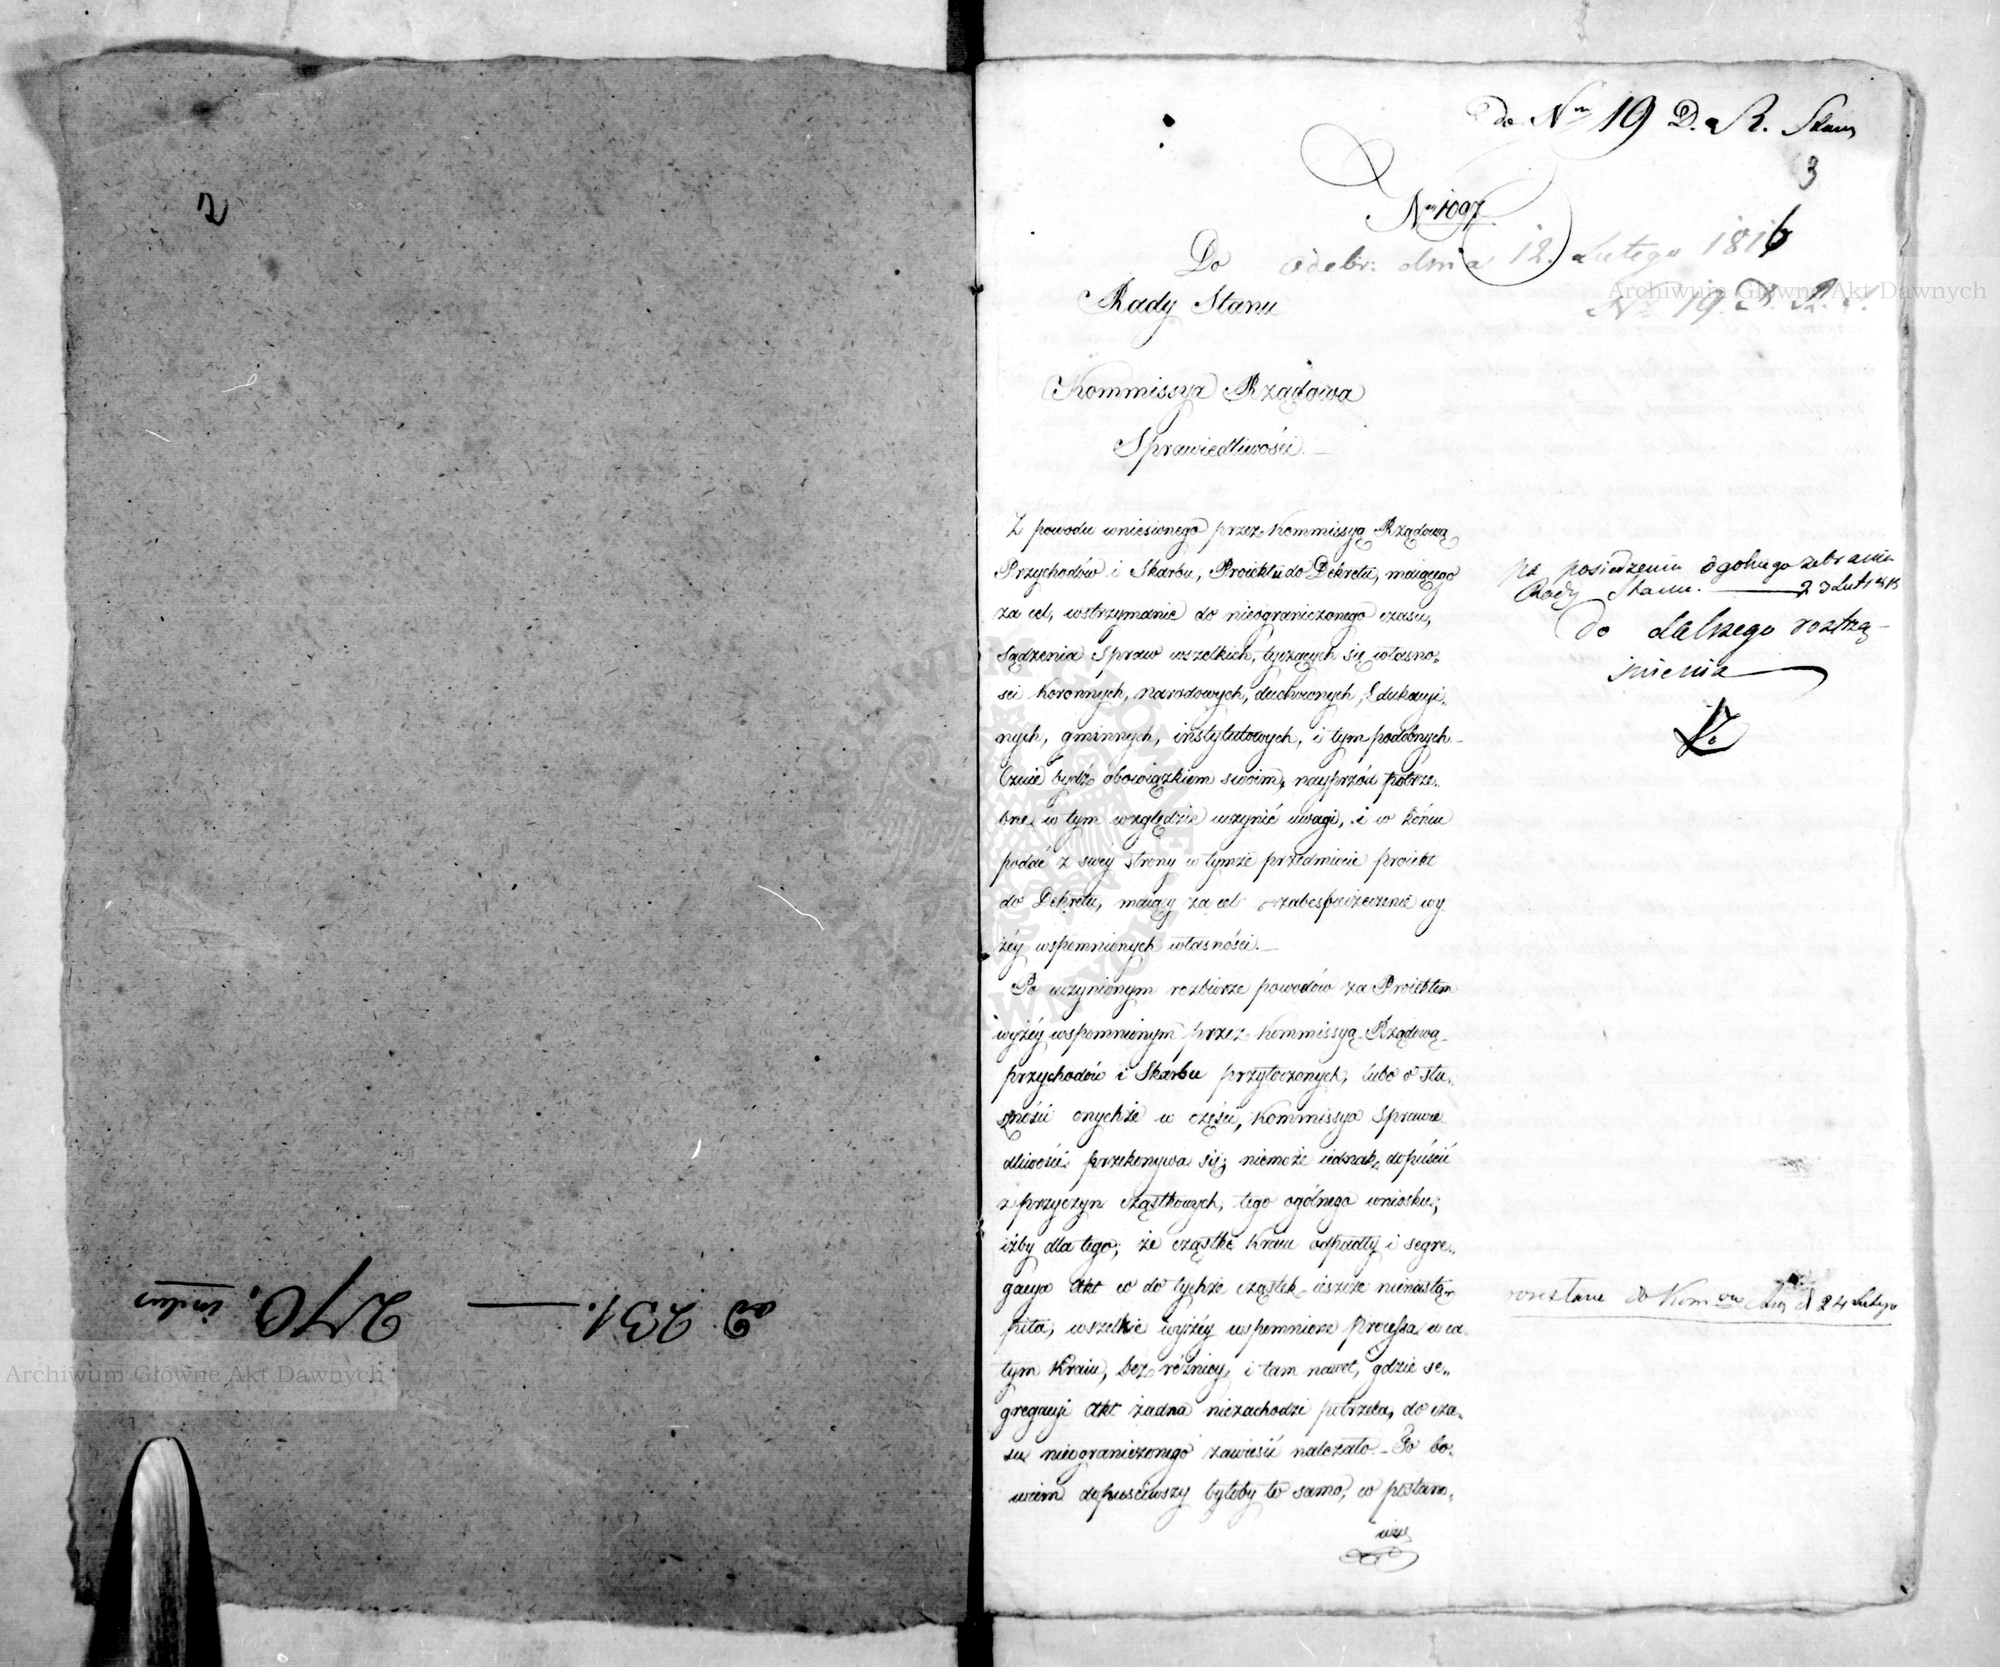 2
ad 231. — 270. inclus
Archiwum Główne Akt Dawnych
Do Nru 19 D. R. Stanu
3
Nro 1097
odebr: dnia 12. Lutego 1816
Nro 19. D. R. S.
Archiwum Główne Akt Dawnych
Do
Rady Stanu
Kommissya Rządowa
Sprawiedliwości.
Z powodu wniesionego przez Kommissyą Rządową
Przychodów i Skarbu, Proiektu do Dekretu, maiącego
za cel, wstrzymanie do nieograniczonego czasu,
sądzenia Spraw wszelkich, tyczących się własno-
ści Koronnych, narodowych, duchownych, Edukacyi-
nych, gminnych, instytutowych, i tym podobnych
Czuie bydź obowiązkiem swoim, nayprzód potrze-
bne w tym względzie uczynić uwagi, i w końcu
podać z swéy strony w tymże przedmiocie proiekt
do Dekretu, maiący za cel zabespieczenie wy-
żéy wspomnionych własności.—
Po uczynionym rozbiorze powodów za Proiektem
wyżéy wspomnionym przez Kommissyą Rządową
przychodów i Skarbu przytoczonych, lubo o słu-
szności onychże w części, Kommissya Sprawie-
dliwości przekonywa się; niemoże iednak, dopuścić
z przyczyn cząstkowych, tego ogólnego wniosku,
iżby dla tego, że cząstki Kraiu odpadły i segre-
gacya Akt co do tychże cząstek ieszcze nienastą-
piła, wszelkie wyżéy wspomnione Processa w ca-
łym Kraiu, bez różnicy, i tam nawet, gdzie se-
gregacyi Akt żadna niezachodzi potrzeba, do cza-
su nieograniczonego zawiesić należało.— To bo-
wiem dopuściwszy byłoby to samo, co postano-
wić
na posiedzeniu ogólnego zebrania
Rady Stanu. — 23 Lut 1816
do dalszego roztrzą-
śnienia
odesłane do Kommis 24 Lutego